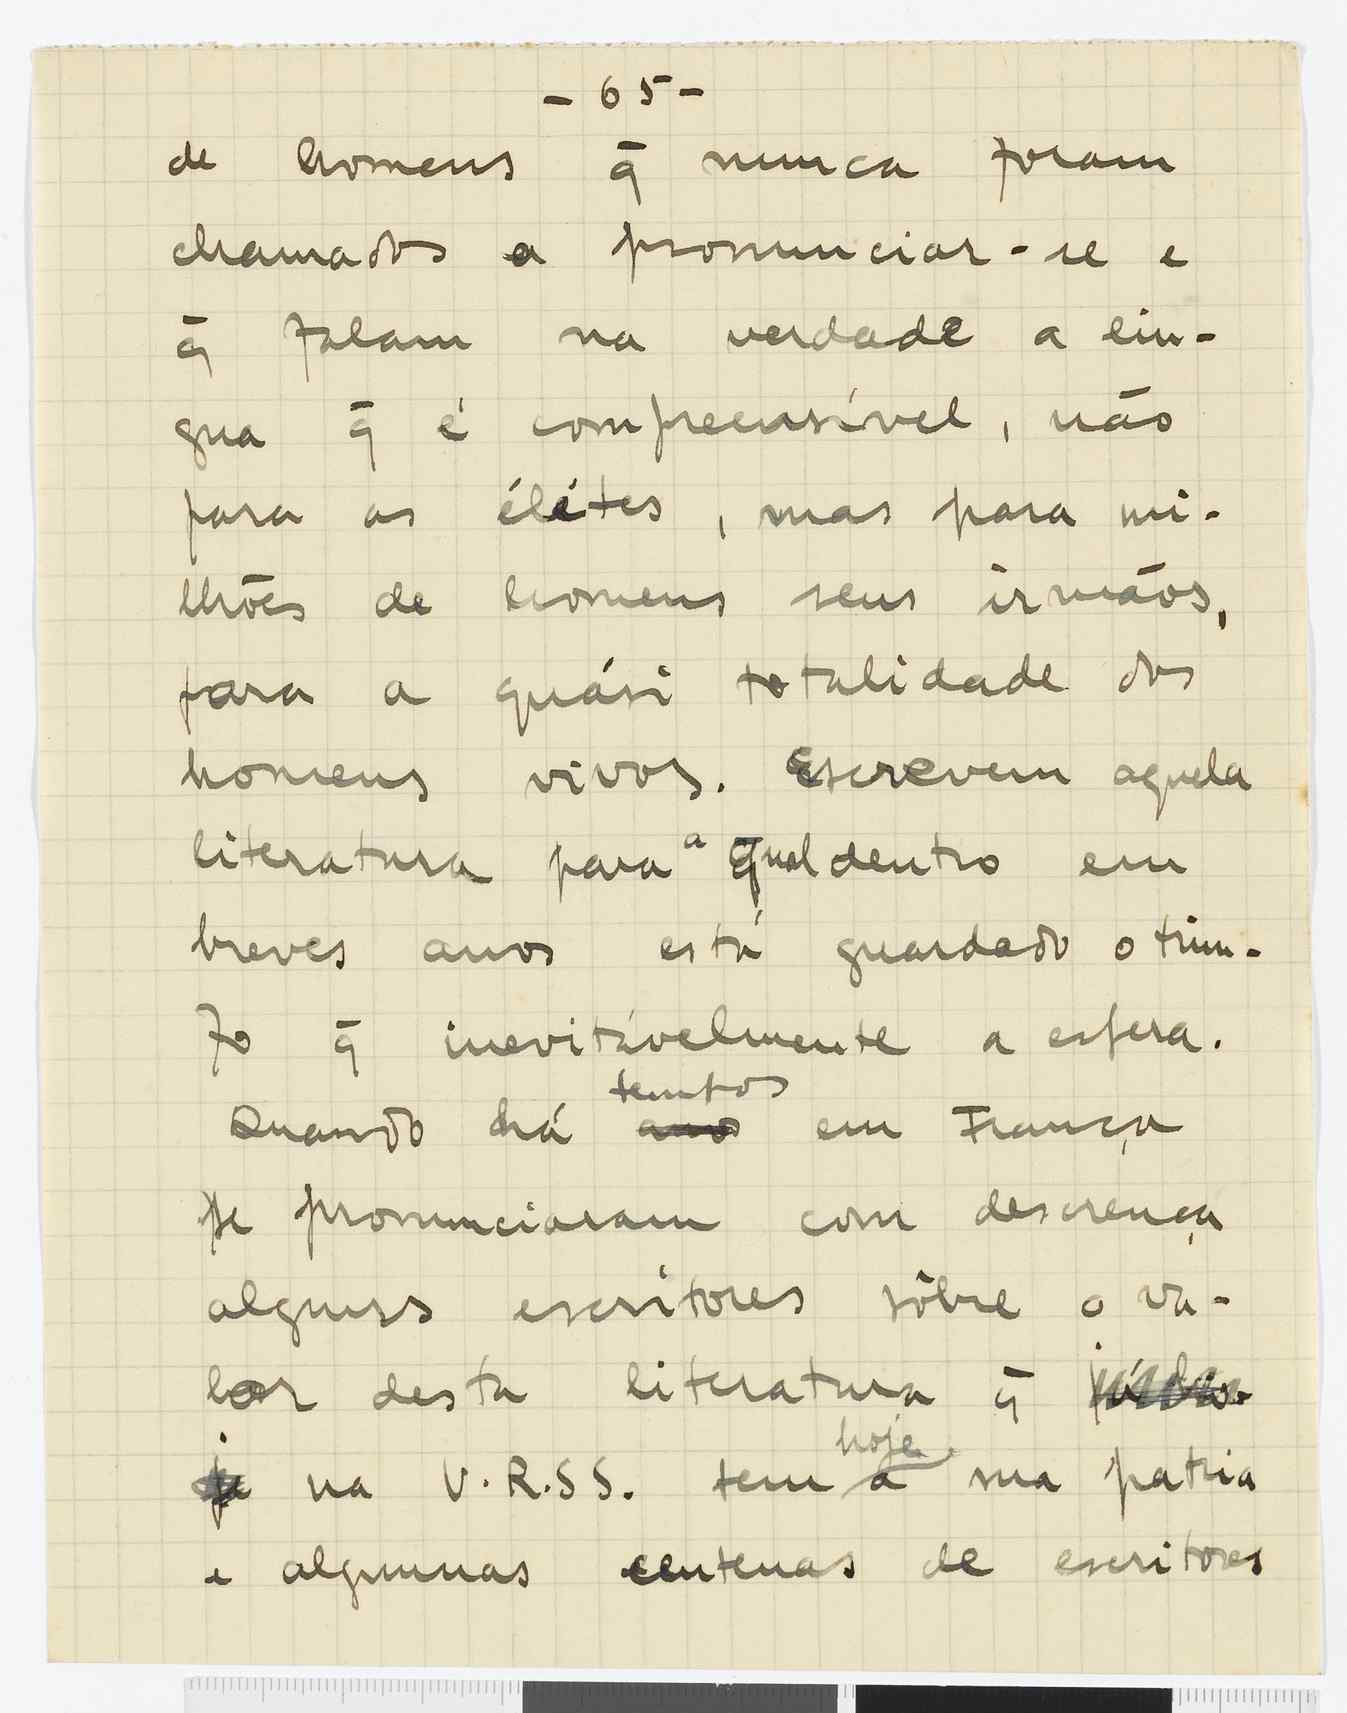 - 65 -
de homens q̄ nunca foram
chamados a pronunciar-se e
q̄ falam na verdade a lin-
gua q̄ é compreensível, não
para as élites, mas para mi-
lhões de homens seus irmãos,
para a quási totalidade dos
homens vivos. Escrevem aquela
literatura para a qual dentro em
breves anos está guardado o triun-
fo q̄ inevitávelmente a espera.
tempos
Quando há ano em França
se pronunciaram com descrença
alguns escritores sôbre o va-
lor desta literatura q̄
hoje
na U.R.S.S. tem a sua patria
e algumas centenas de escritores